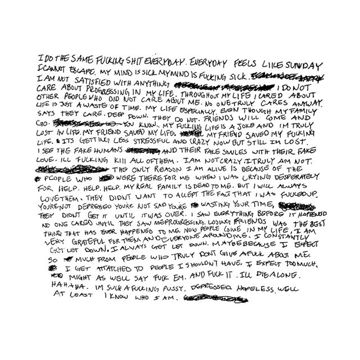 I DO THE SAME FUCKING SHIT EVERYDAY. EVERYDAY FEELS LIKE SUNDAY
I CANNOT ESCAPE. MY MIND IS SICK. MY MIND IS FUCKING SICK.
I AM NOT SATISFIED WITH ANYTHING I DO NOT
CARE ABOUT PROGRESSING IN MY LIFE. THROUGHOUT MY LIFE I CARED ABOUT
OTHER PEOPLE WHO DID NOT CARE ABOUT ME. NO ONE TRULY CARES ANYWAY.
LIFE IS JUST A WASTE OF TIME. MY LIFE ESPECIALLY EVEN THOUGH MY FAMILY
SAYS THEY CARE. DEEP DOWN THEY DO NOT. FRIENDS WILL COME AND
GO. YOU KNOW, MY FUCKING LIFE IS A JOKE AND I'M TRULY
LOST IN LIFE. MY FRIEND SAVED MY LIFE. MY FRIEND SAVED MY FUCKING
LIFE. IT'S GETTING LESS STRESSFUL AND CRAZY NOW BUT STILL IM LOST.
I SEE THE FAKE HUMANS AND THEIR FAKE SMILES WITH THEIR FAKE
LOVE. ILL FUCKING KILL ALL OF THEM. I AM NOT CRAZY I TRULY AM NOT.
THE ONLY REASON I AM ALIVE IS BECAUSE OF THE
PEOPLE WHO WERE THERE FOR ME WHEN I WAS CRYING DESPERATELY
FOR HELP. HELP. HELP. MY REAL FAMILY IS DEAD TO ME. BUT I WILL ALWAYS
LOVE THEM. THEY DIDN'T WANT TO ACCEPT THE FACT THAT I WAS FUCKED UP.
YOU'RE NOT DEPRESSED YOU'RE NOT SAD YOU'RE WASTING YOUR TIME,
THEY DIDN'T GET IT UNTIL IT WAS OVER. I SAW EVERYTHING BEFORE IT HAPPENED
NO ONE CARED UNTIL THEY SAW ME PROGRESSING. LOSING FRIENDS WAS THE BEST
THING THAT HAS EVER HAPPENED TO ME. NOW PEOPLE COME IN MY LIFE, I AM
VERY GRATEFUL FOR THEM AND EVERYONE AROUND ME. I CONSTANTLY
GET LET DOWN. I ALWAYS GOT LET DOWN. MAYBE BECAUSE I EXPECT
SO MUCH FROM PEOPLE WHO TRULY DON'T GIVE A FUCK ABOUT ME
I GET ATTATCHED TO PEOPLE I SHOULDN'T HAVE. I EXPECT TOO MUCH.
MIGHT AS WELL SAY FUCK EM. AND FUCK IT. ILL DIE ALONE.
HAHAHA. IM SUCH A FUCKING PUSSY. DEPRESSED, HOPELESS, WELL
AT LEAST I KNOW WHO I AM.